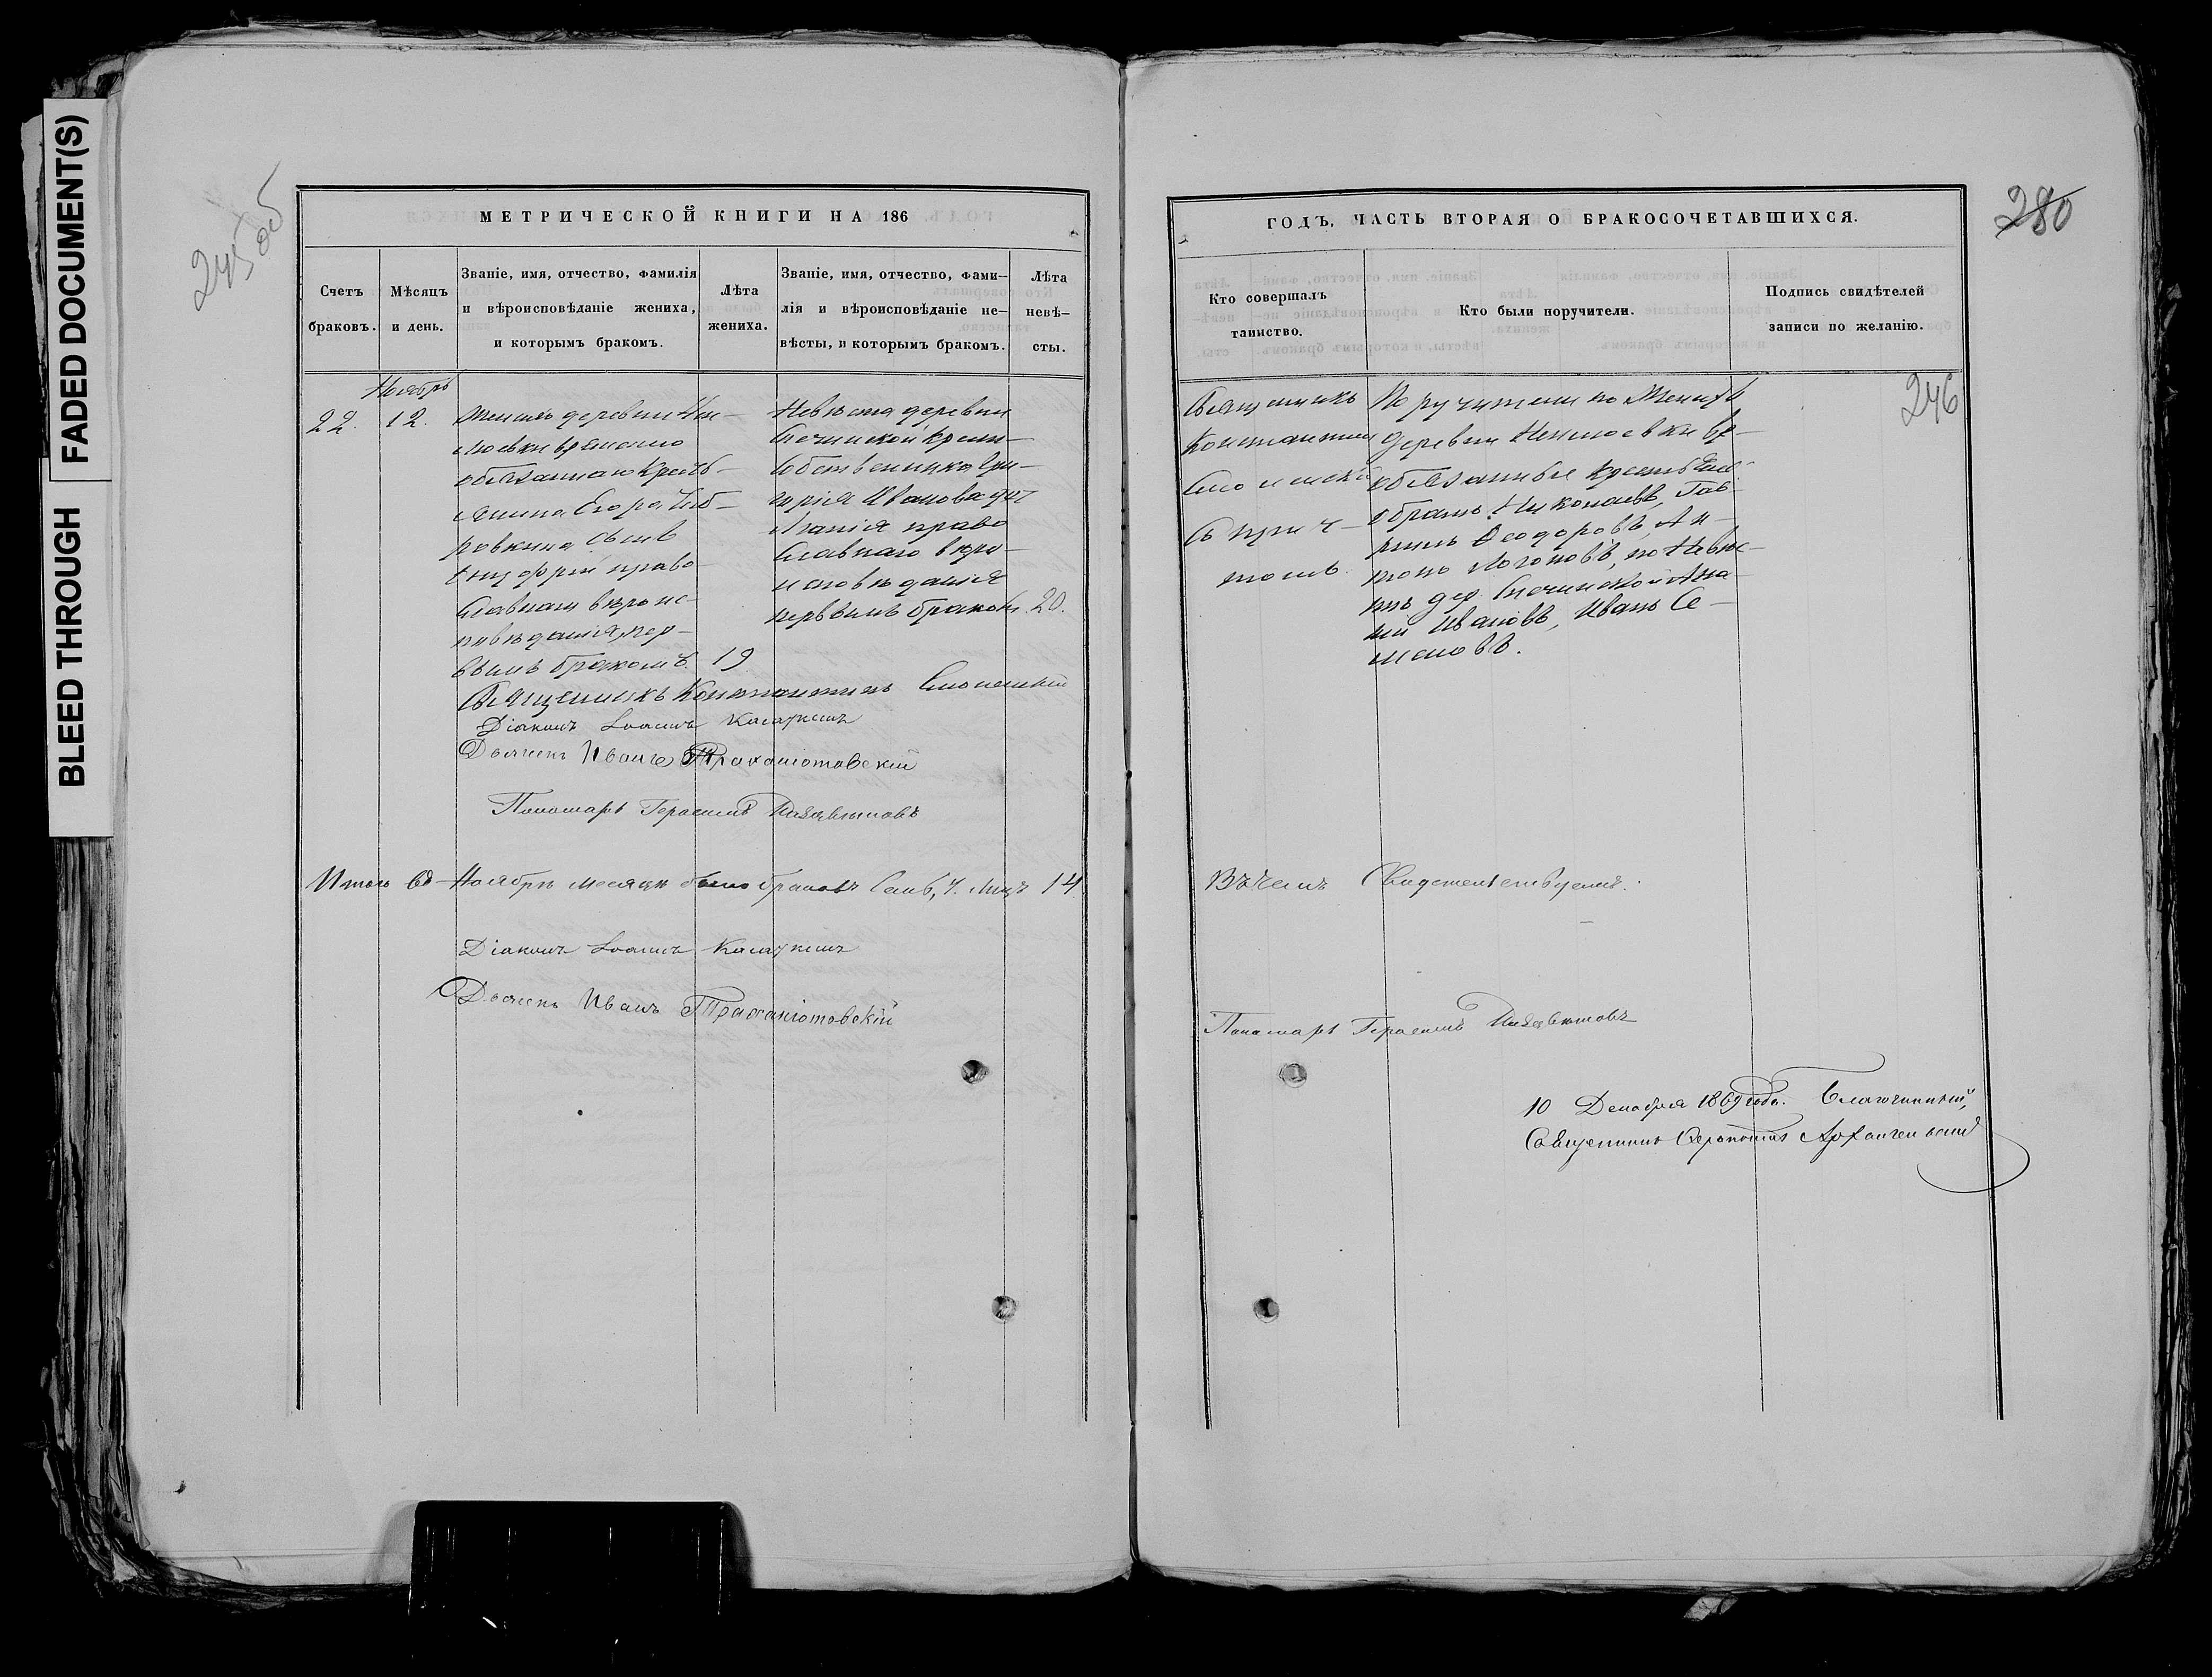 BLEED THROUGH
FADED DOCUMENT(S)
245 об
МЕТРИЧЕСКОЙ КНИГИ НА 186
Счетъ браковъ.
Мѣсяцъ и день.
Званіе, имя, отчество, фамилія
и вѣроисповѣданіе жениха,
и которымъ бракомъ.
Лѣта
жениха.
Званіе, имя, отчество, фами-
лія и вѣроисповѣданіе не-
вѣсты, и которымъ бракомъ.
Лѣта
невѣ-
сты.
Ноябрь
22.
12.
Женихъ деревни
временно
обязаннаго кресть-
янина Егора
сынъ
право
славнаго вѣроис-
повѣданія, пер-
вымъ бракомъ.
19
Невѣста деревни
крест
собственника
Иванова
право
славнаго вѣро-
исповѣданія
первымъ бракомъ.
20.
Священникъ Константинъ Смоленскій
Діаконъ Іоаннъ Касаткинъ
Дьячекъ Иванъ Траханіотовскій
Пономарь Герасимъ
Итого въ Ноябрѣ месяцѣ было браковъ Семь, 7. Лицъ 14
Діаконъ Іоаннъ Касаткинъ
Дьячекъ Иванъ Траханіотовскій
ГОДЪ, ЧАСТЬ ВТОРАЯ О БРАКОСОЧЕТАВШИХСЯ.
280
246
Кто совершалъ
таинство.
Кто были поручители.
Подпись свидѣтелей
записи по желанію.
Священникъ
Константинъ
Смоленскій
Съ прич-
томъ.
Поручители по Женихѣ
деревни вр-
обязанные крестьяне
Николаевъ, Гав-
Ѳеодоровъ, Ан-
тонъ по Невѣс-
тѣ дер.
Ивановъ, Иванъ Се-
меновъ.
Въ чемъ Свидетельствуемъ.
Пономарь Герасимъ
10 Декабря 1869 года. Благочинный,
Священникъ Архангельскій